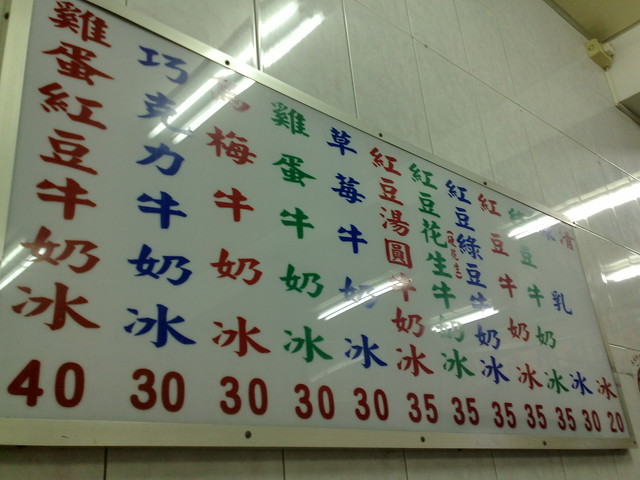 雞蛋紅豆牛奶冰 40
巧克力牛奶冰 30
烏梅牛奶冰 30
雞蛋牛奶冰 30
草莓牛奶冰 30
紅豆湯圓牛奶冰 35
紅豆花生牛奶冰 35
紅豆綠豆牛奶冰 35
紅豆牛奶冰 35
豆牛奶冰 35
乳冰 30
清冰 20